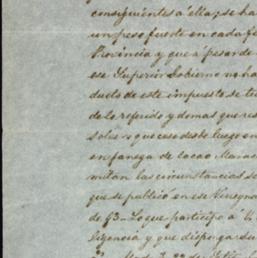 consiguientes á ella, se ha
un peso fuerte en cada fa
Provincia y que á pesar de
ese Superior Gobierno no ha
ducto de este impuesto se
de lo referido y demas que
que cese desde luego
en fanega de cacao Mara
mitan las circunstancias
que se publicó en ese
de 63. Lo que participo á V.
ligencia y que disponga su